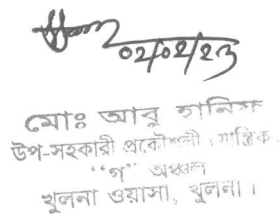 ০২/০২/২৩
মোঃ আবু হানিফ
উপ-সহকারী প্রকৌশলী । যান্ত্রিক.
“গ” অঞ্চল
খুলনা ওয়াসা, খুলনা ।